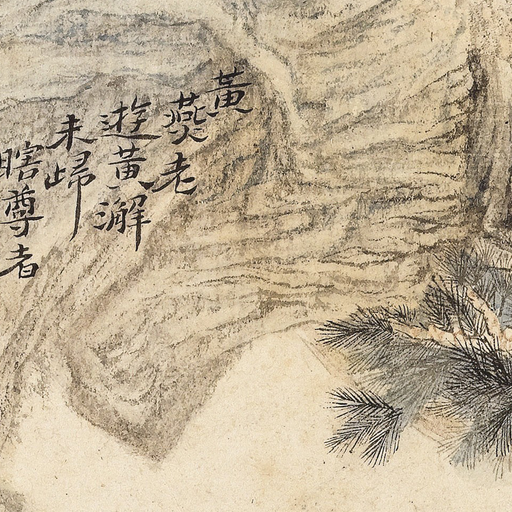 黃
燕老
遊黃澥
未歸
瞎尊者